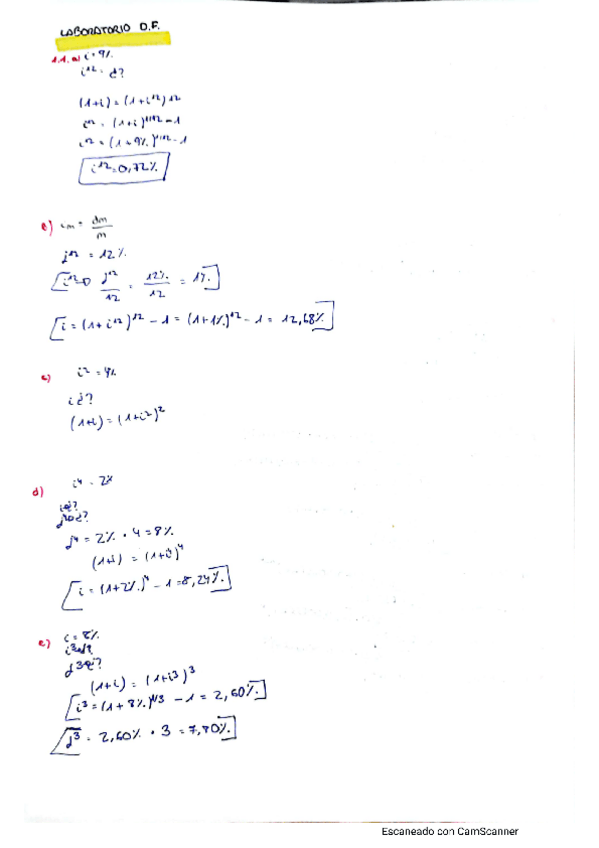 LABORATORIO D.F.
1.1. a) i = 9%
i¹² = ¿?
(1+i) = (1+i¹²)¹²
i¹² = (1+i)^1/12 - 1
i¹² = (1+9%)^1/12 - 1
i¹² = 0,72%
im = Jm/m
J¹² = 12%
J¹²/12 = 12%/12 = 1%
i = (1+i¹²)¹² - 1 = (1+1%)¹² - 1 = 12,68%
c) i² = 4%
i ¿?
(1+i) = (1+i²)²
d) i⁴ = 2%
J⁴ = 2% · 4 = 8%
(1+i) = (1+i⁴)⁴
i = (1+2%)⁴ - 1 = 8,24%
e) i = 8%
(1+i) = (1+i³)³
i³ = (1+8%)^1/3 - 1 = 2,60%
J³ = 2,60% · 3 = 7,80%
Escaneado con CamScanner